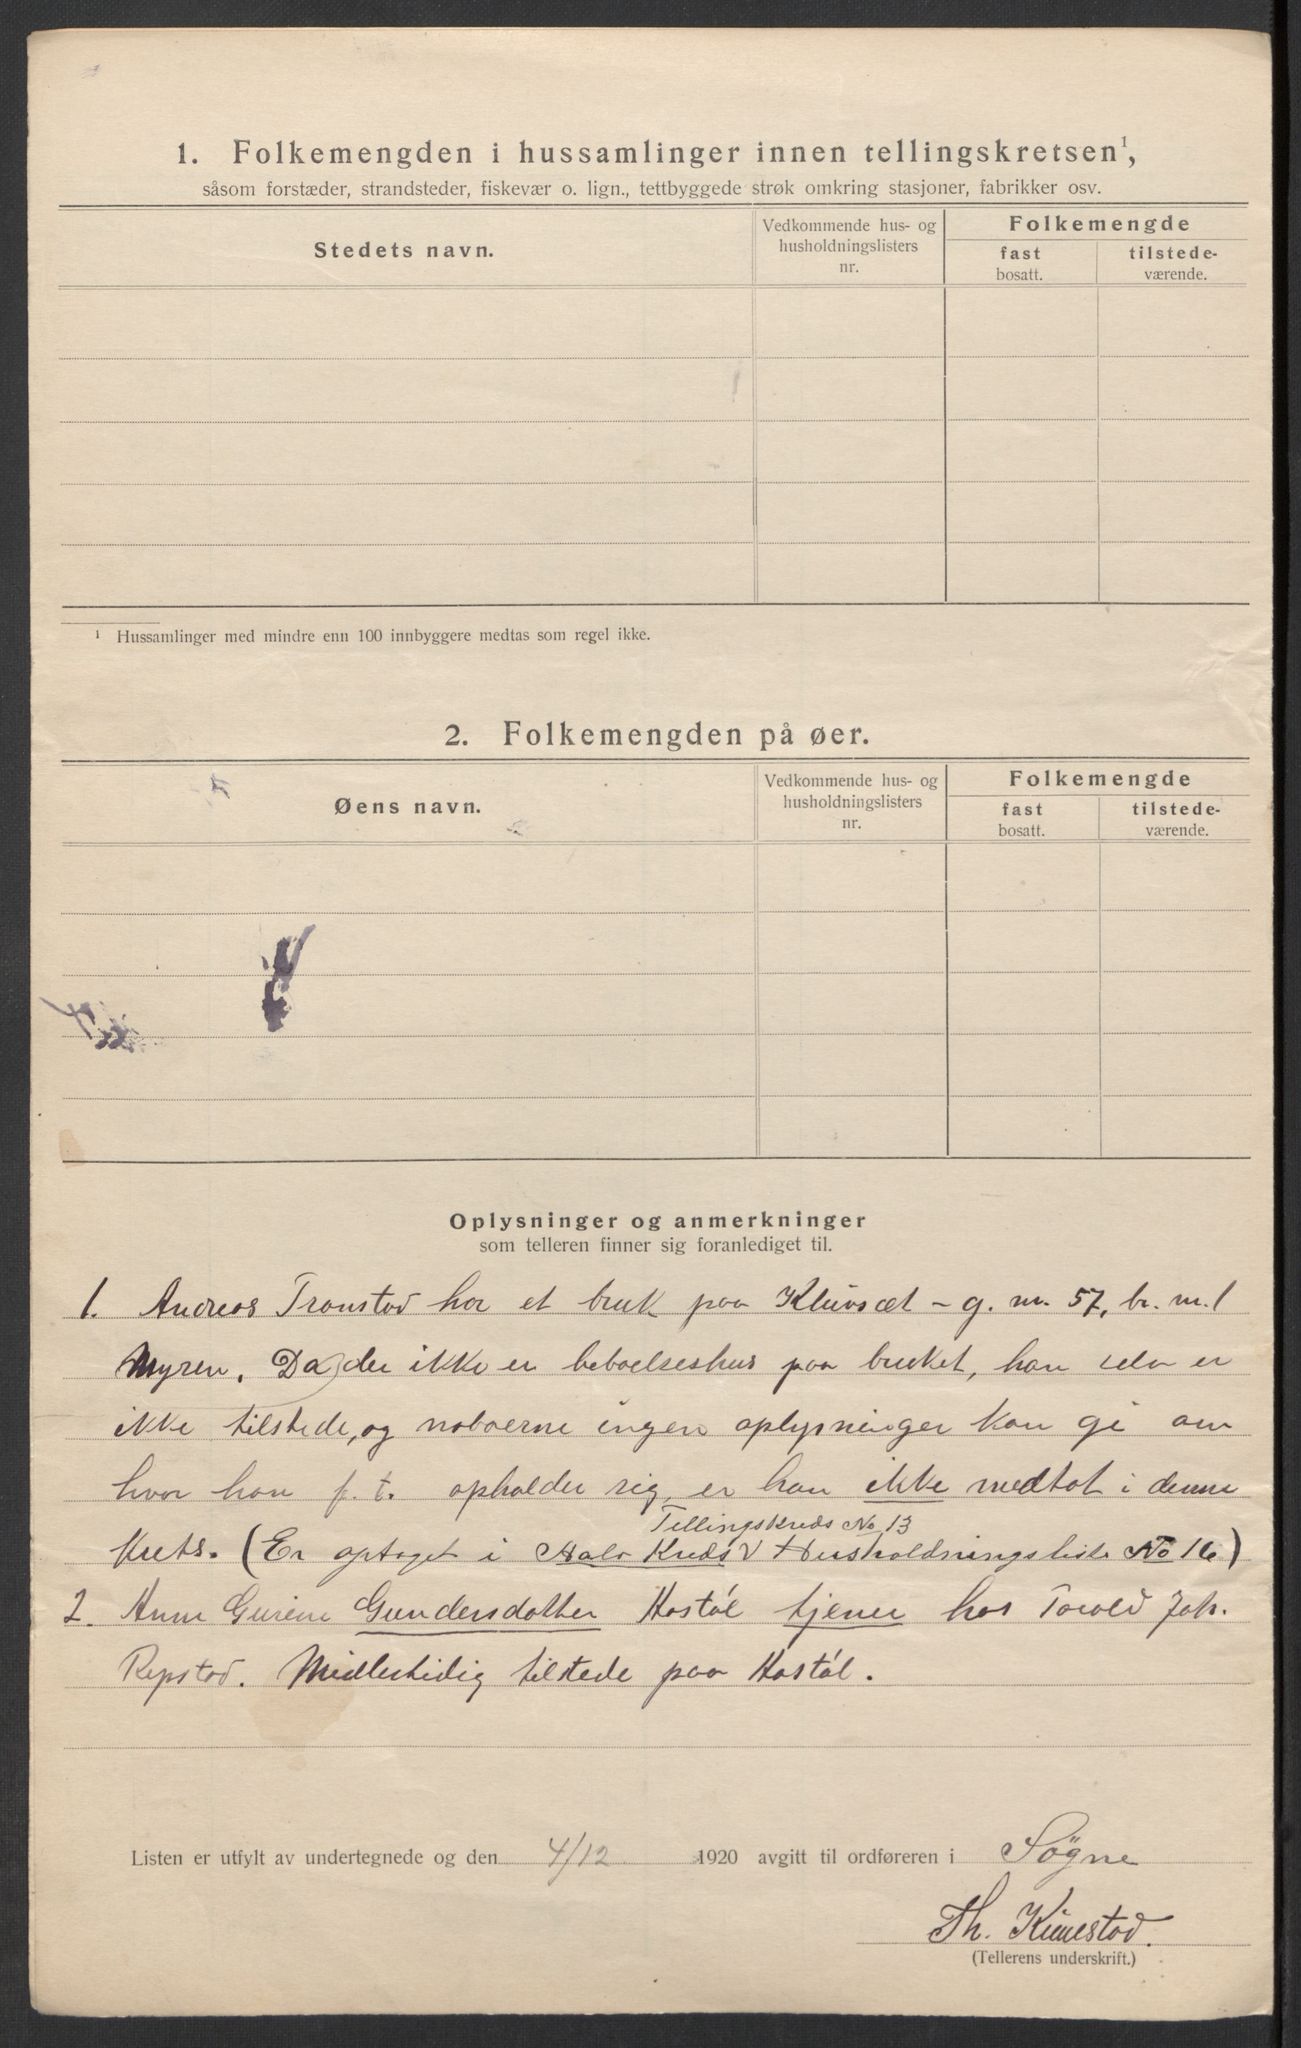 1. Folkemengden i hussamlinger innen tellingskretsen¹,
såsom forstæder, strandsteder, fiskevær o. lign., tettbyggede strøk omkring stasjoner, fabrikker osv.
Stedets navn.
Vedkommende hus- og
husholdningslisters
nr.
Folkemengde
fast
bosatt.
tilstede-
værende.
¹ Hussamlinger med mindre enn 100 innbyggere medtas som regel ikke.
2. Folkemengden på øer.
Øens navn.
Vedkommende hus- og
husholdningslisters
nr.
Folkemengde
fast
bosatt.
tilstede-
værende.
Oplysninger og anmerkninger
som telleren finner sig foranlediget til.
1. Andreas Tronstad har et bruk paa - g. nr. 57, br. nr. 1
Myren. Da der ikke er beboelseshus paa bruket, han selv er
ikke tilstede, og naboerne ingen oplysninger kan gi om
hvor han f. t. opholder sig, er han ikke medtat i denne
Tellingskreds No 13
krets. (Er optaget i Kreds Husholdningsliste No 16)
2. Anne Gurine Gundersdatter Hastøl tjener hos Torvald Joh.
Repstad. Midlertidig tilstede paa Hastøl.
Listen er utfylt av undertegnede og den 4/12 1920 avgitt til ordføreren i Søgne
Th. Kimestad.
(Tellerens underskrift.)